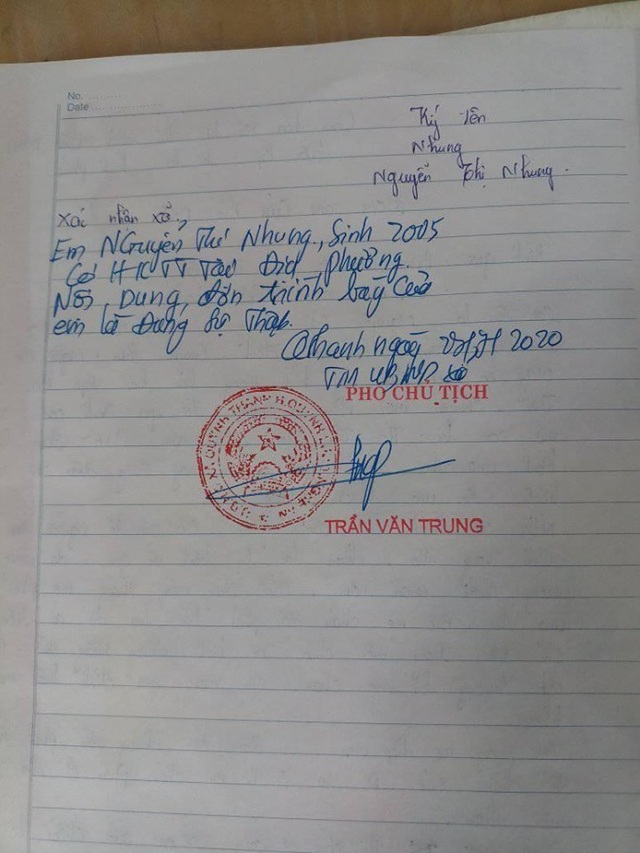 No.
Date
Ký tên
Nhung
Nguyễn Thị Nhung.
Xác nhận xã,
Em Nguyễn Thị Nhung, Sinh 2005
Có HKTT Tại Địa phương.
Nội Dung, đơn trình bày của
em là Đúng Sự Thật.
Q Thanh ngày 2020
TM UBND xã
PHÓ CHỦ TỊCH
X. QUỲNH THANH H. QUỲNH LƯU T. NGHỆ AN
TRẦN VĂN TRUNG